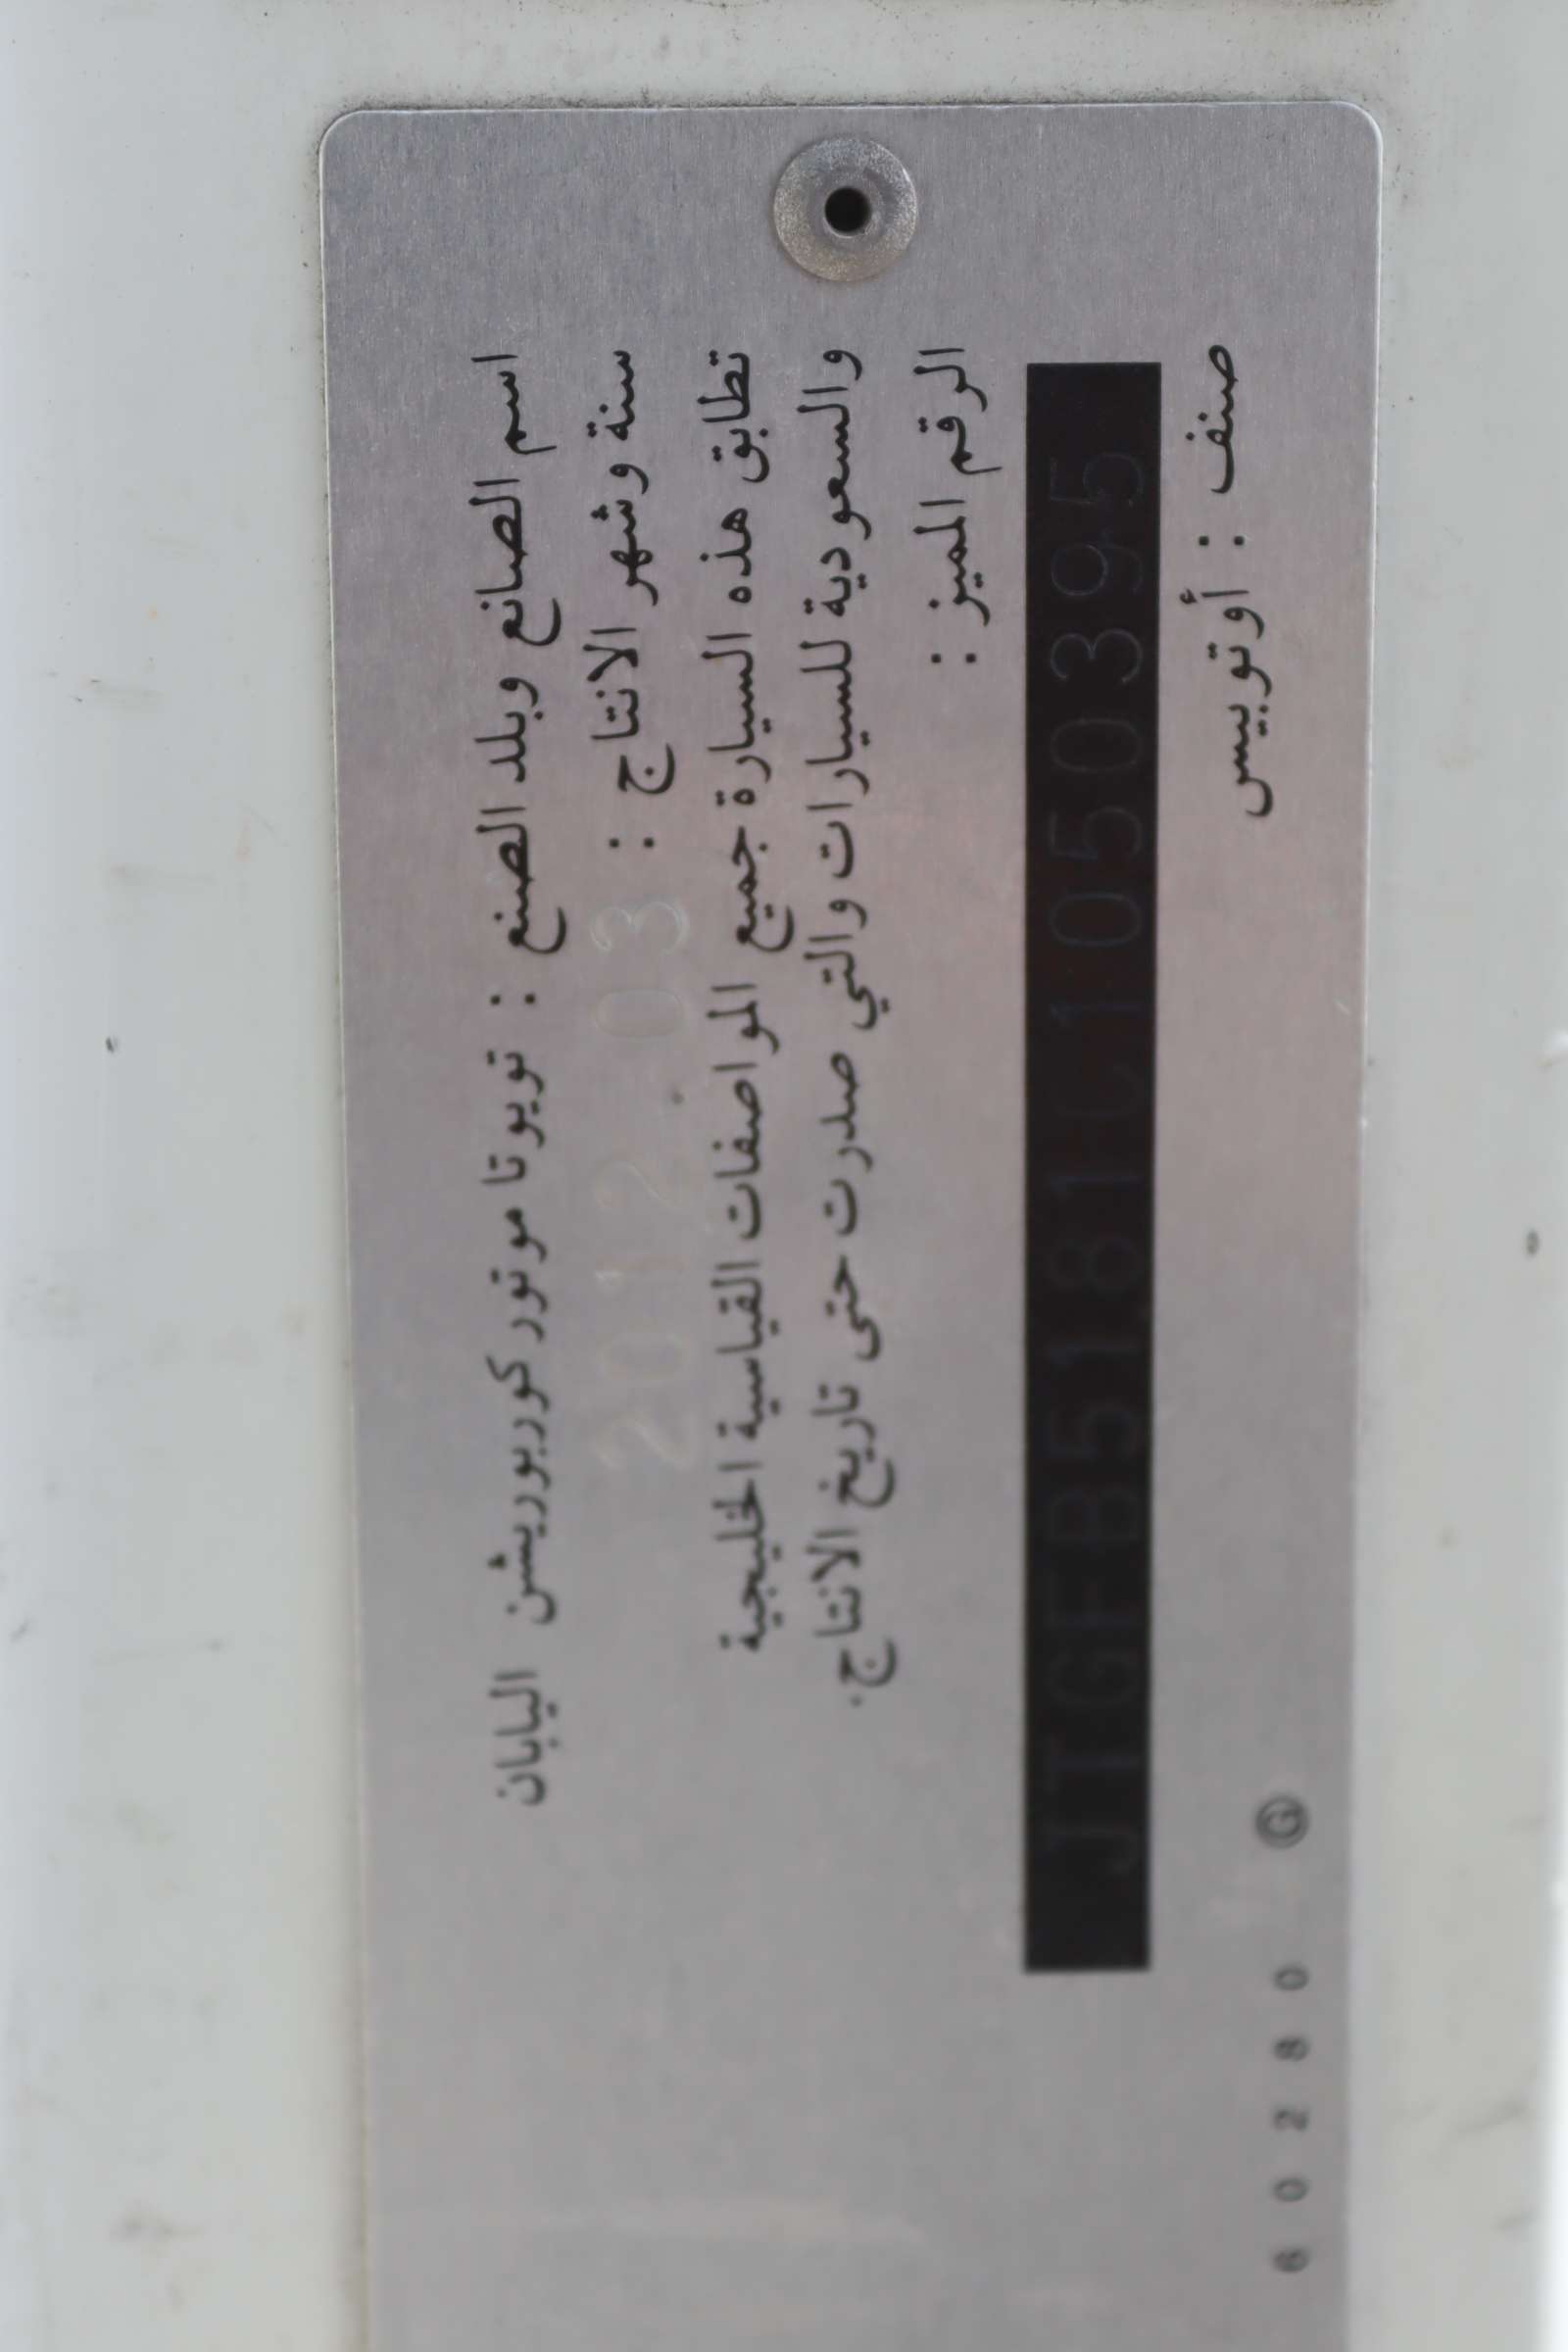 اسم الصانع وبلد الصنع : تويوتا موتور كوربوريشن اليابان
سنة وشهر الانتاج : 2012 03
تطابق هذه السيارة جميع المواصفات القياسية الخليجية
والسعودية للسيارات والتي صدرت حتى تاريخ الانتاج.
الرقم المميز :
JTGFB5181C1050395
صنف : أوتوبيس
60280 G